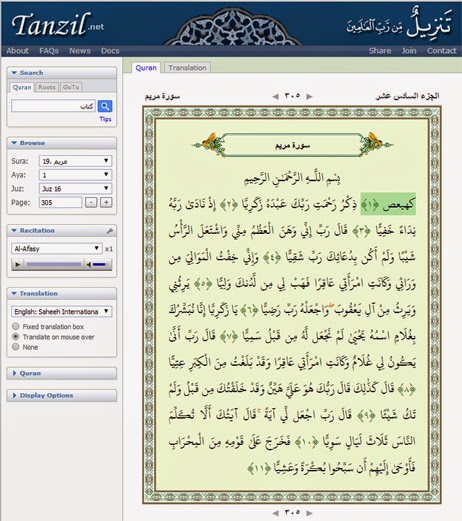 Tanzil.net
تَنزِيلٌ مِّن رَبِّ الْعَالَمِين
About FAQs News Docs Share Join Contact
Search
Quran Roots GoTo
كتاب
Tips
Browse
Sura: 19. مريم
Aya: 1
Juz: Juz 16
Page: 305 - +
Recitation
Al-Afasy x1
Translation
English: Saheeh Internationa
Fixed translation box
Translate on mouse over
None
Quran
Display Options
Quran Translation
الجزء السادس عشر ٣٠٥ سورة مريم
سورة مريم
بِسْمِ اللَّـهِ الرَّحْمَـٰنِ الرَّحِيمِ
كهيعص ﴿١﴾ ذِكْرُ رَحْمَتِ رَبِّكَ عَبْدَهُ زَكَرِيَّا ﴿٢﴾ إِذْ نَادَىٰ رَبَّهُ
نِدَاءً خَفِيًّا ﴿٣﴾ قَالَ رَبِّ إِنِّي وَهَنَ الْعَظْمُ مِنِّي وَاشْتَعَلَ الرَّأْسُ
شَيْبًا وَلَمْ أَكُن بِدُعَائِكَ رَبِّ شَقِيًّا ﴿٤﴾ وَإِنِّي خِفْتُ الْمَوَالِيَ مِن
وَرَائِي وَكَانَتِ امْرَأَتِي عَاقِرًا فَهَبْ لِي مِن لَّدُنكَ وَلِيًّا ﴿٥﴾ يَرِثُنِي
وَيَرِثُ مِنْ آلِ يَعْقُوبَ ۖ وَاجْعَلْهُ رَبِّ رَضِيًّا ﴿٦﴾ يَا زَكَرِيَّا إِنَّا نُبَشِّرُكَ
بِغُلَامٍ اسْمُهُ يَحْيَىٰ لَمْ نَجْعَل لَّهُ مِن قَبْلُ سَمِيًّا ﴿٧﴾ قَالَ رَبِّ أَنَّىٰ
يَكُونُ لِي غُلَامٌ وَكَانَتِ امْرَأَتِي عَاقِرًا وَقَدْ بَلَغْتُ مِنَ الْكِبَرِ عِتِيًّا
﴿٨﴾ قَالَ كَذَٰلِكَ قَالَ رَبُّكَ هُوَ عَلَيَّ هَيِّنٌ وَقَدْ خَلَقْتُكَ مِن قَبْلُ وَلَمْ
تَكُ شَيْئًا ﴿٩﴾ قَالَ رَبِّ اجْعَل لِّي آيَةً ۚ قَالَ آيَتُكَ أَلَّا تُكَلِّمَ
النَّاسَ ثَلَاثَ لَيَالٍ سَوِيًّا ﴿١٠﴾ فَخَرَجَ عَلَىٰ قَوْمِهِ مِنَ الْمِحْرَابِ
فَأَوْحَىٰ إِلَيْهِمْ أَن سَبِّحُوا بُكْرَةً وَعَشِيًّا ﴿١١﴾
٣٠٥